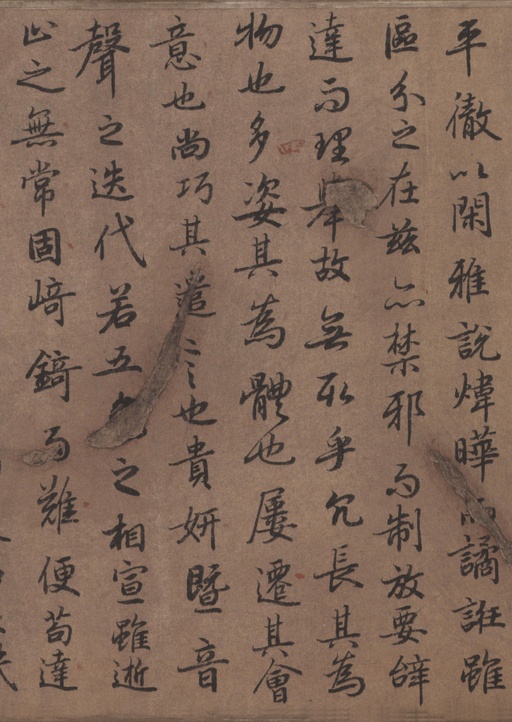 平徹以閑雅說煒曄而譎誑雖
區分之在茲亦禁邪而制放要辭
達而理舉故無取乎冗長其為
物也多姿其為體也屢遷其會
意也尚巧其遣言也貴妍暨音
聲之迭代若五色之相宣雖逝
止之無常固崎錡而難便苟達